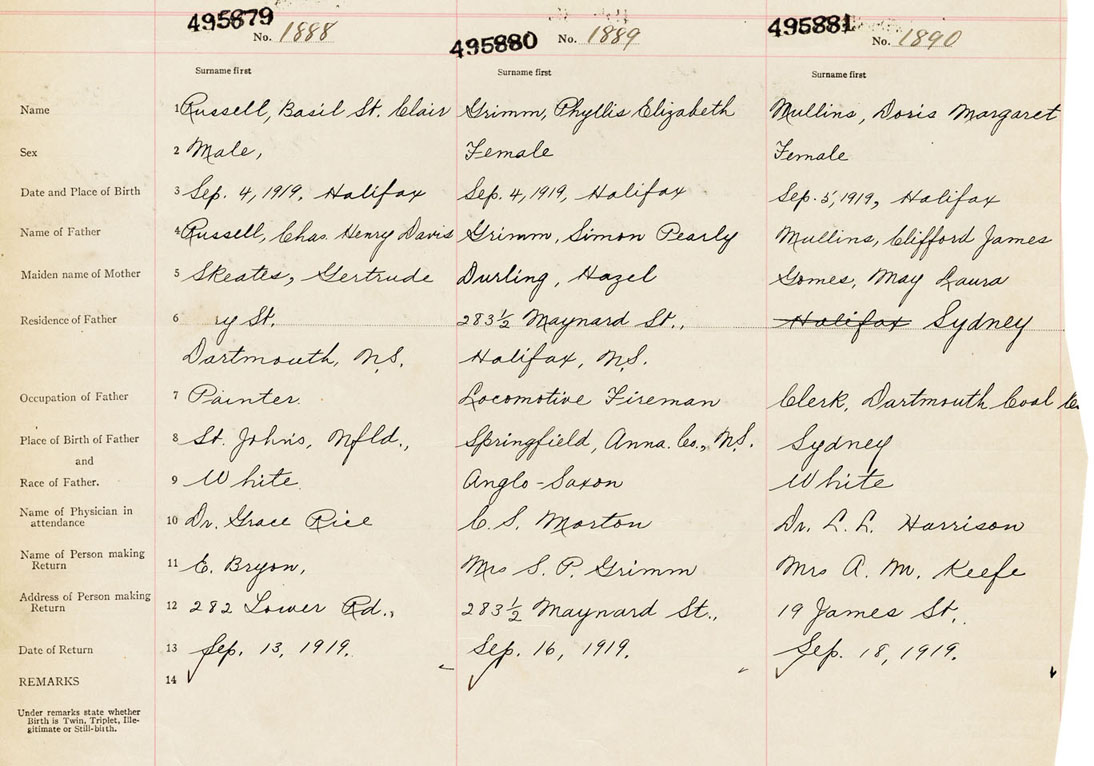 495879 No. 1888 495880 No. 1889 495881 No. 1890
Surname first Surname first Surname first
Name 1 Russell, Basil St. Clair Grimm, Phyllis Elizabeth Mullins, Doris Margaret
Sex 2 Male, Female Female
Date and Place of Birth 3 Sep. 4, 1919, Halifax Sep. 4, 1919, Halifax Sep. 5, 1919, Halifax
Name of Father 4 Russell, Chas. Henry Davis Grimm, Simon Pearly Mullins, Clifford James
Maiden name of Mother 5 Skeates, Gertrude Durling, Hazel Gomes, May Laura
Residence of Father 6 St. 283½ Maynard St., Halifax Sydney
Dartmouth, N.S. Halifax, N.S.
Occupation of Father 7 Painter. Locomotive Fireman Clerk, Dartmouth Coal Co
Place of Birth of Father 8 St. John's, Nfld., Springfield, Anna. Co., N.S. Sydney
and
Race of Father. 9 White Anglo-Saxon White
Name of Physician in
attendance 10 Dr. Grace Rice C. S. Morton Dr. L. L. Harrison
Name of Person making
Return 11 E. Bryon, Mrs S. P. Grimm Mrs A. M. Keefe
Address of Person making
Return 12 282 Lower Rd., 283½ Maynard St., 19 James St.
Date of Return 13 Sep. 13, 1919. Sep. 16, 1919. Sep. 18, 1919.
REMARKS 14
Under remarks state whether
Birth is Twin, Triplet, Ille-
gitimate or Still-birth.